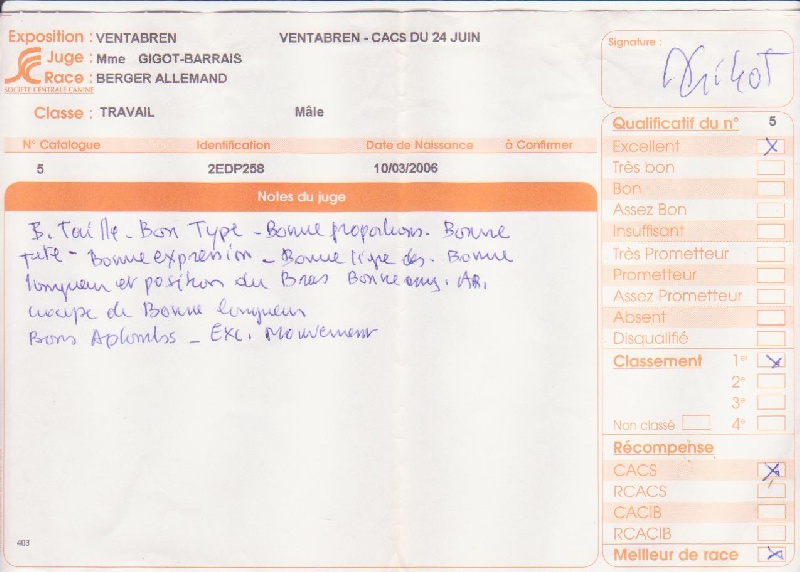 Exposition : VENTABREN VENTABREN - CACS DU 24 JUIN
Juge : Mme GIGOT-BARRAIS
Race : BERGER ALLEMAND
SOCIÉTÉ CENTRALE CANINE
Classe : TRAVAIL Mâle
N° Catalogue Identification Date de Naissance à Confirmer
5 2EDP258 10/03/2006
Notes du juge
B. Taille - Bon Type - Bonne proportions. Bonne
tete - Bonne expression - Bonne ligne dos. Bonne
longueur et position du Bras Bonne ang. AR.
croupe de Bonne longueur
Bons Aplombs - Exc. Mouvement
403
Signature :
Qualificatif du n° 5
Excellent X
Très bon
Bon
Assez Bon
Insuffisant
Très Prometteur
Prometteur
Assez Prometteur
Absent
Disqualifié
Classement 1er X
2e
3e
Non classé 4e
Récompense
CACS X
RCACS
CACIB
RCACIB
Meilleur de race X